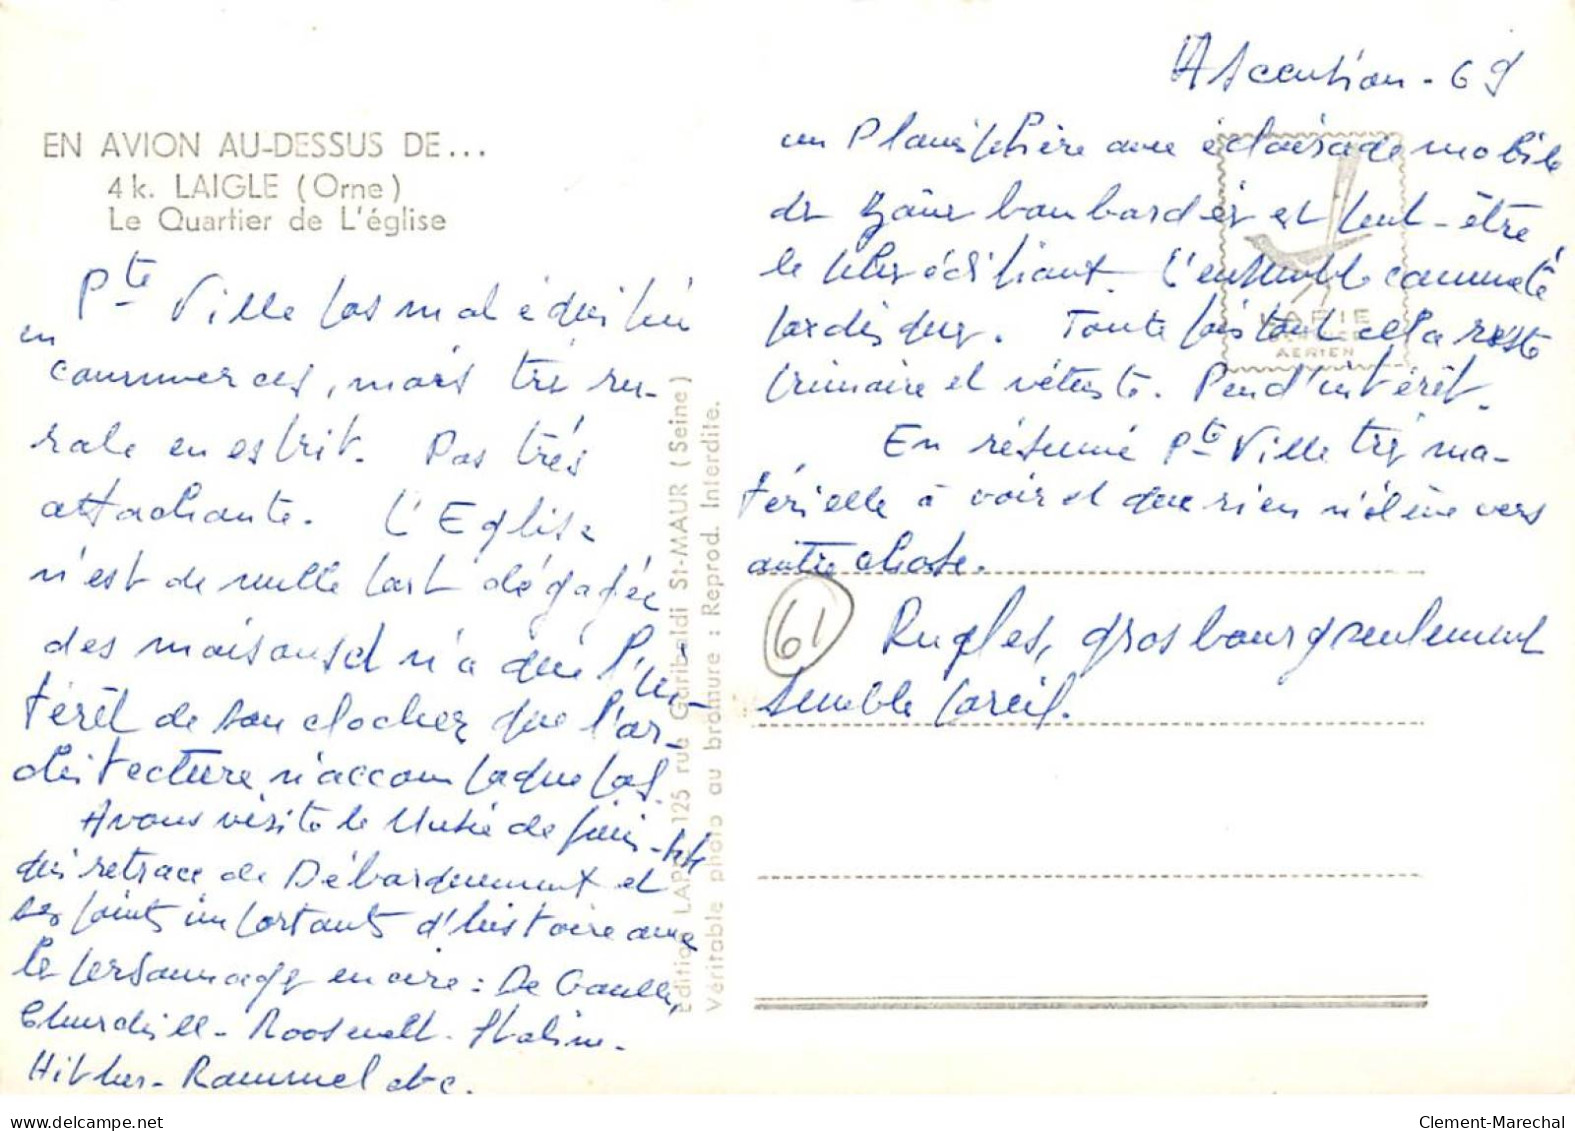 EN AVION AU-DESSUS DE...
4 k. LAIGLE (Orne)
Le Quartier de L'église
Pte Ville pas mal équipée
en
commerces, mais très ru-
rale en esprit. Pas très
attachante. L'Eglise
n'est de nulle part dégagée
des maisons et n'a que l'in-
térêt de son clocher que l'ar-
chitecture n'accompagne pas.
Avons visité le Musée de Juin-44
qui retrace de Débarquement et
ses points importants d'histoire avec
les personnages en cire : De Gaulle,
Churchill - Roosevelt - Staline -
Hitler - Rommel etc.
Edition LAPIE 125 rue Garibaldi St-MAUR (Seine)
Véritable photo au bromure : Reprod. Interdite.
LAPIE
SERVICE
AERIEN
Ascension - 69
un Planisphère avec éclairage mobile
de bombardés est peut-être
le plus édifiant. L'ensemble commenté
par disque. Toutefois tout cela reste
primaire et vétuste. Peu d'intérêt.
En résumé Pte Ville très ma-
térielle à voir et que rien n'élève vers
autre chose.
61
Rugles, gros bourg seulement
semble pareil.
Clement-Marechal